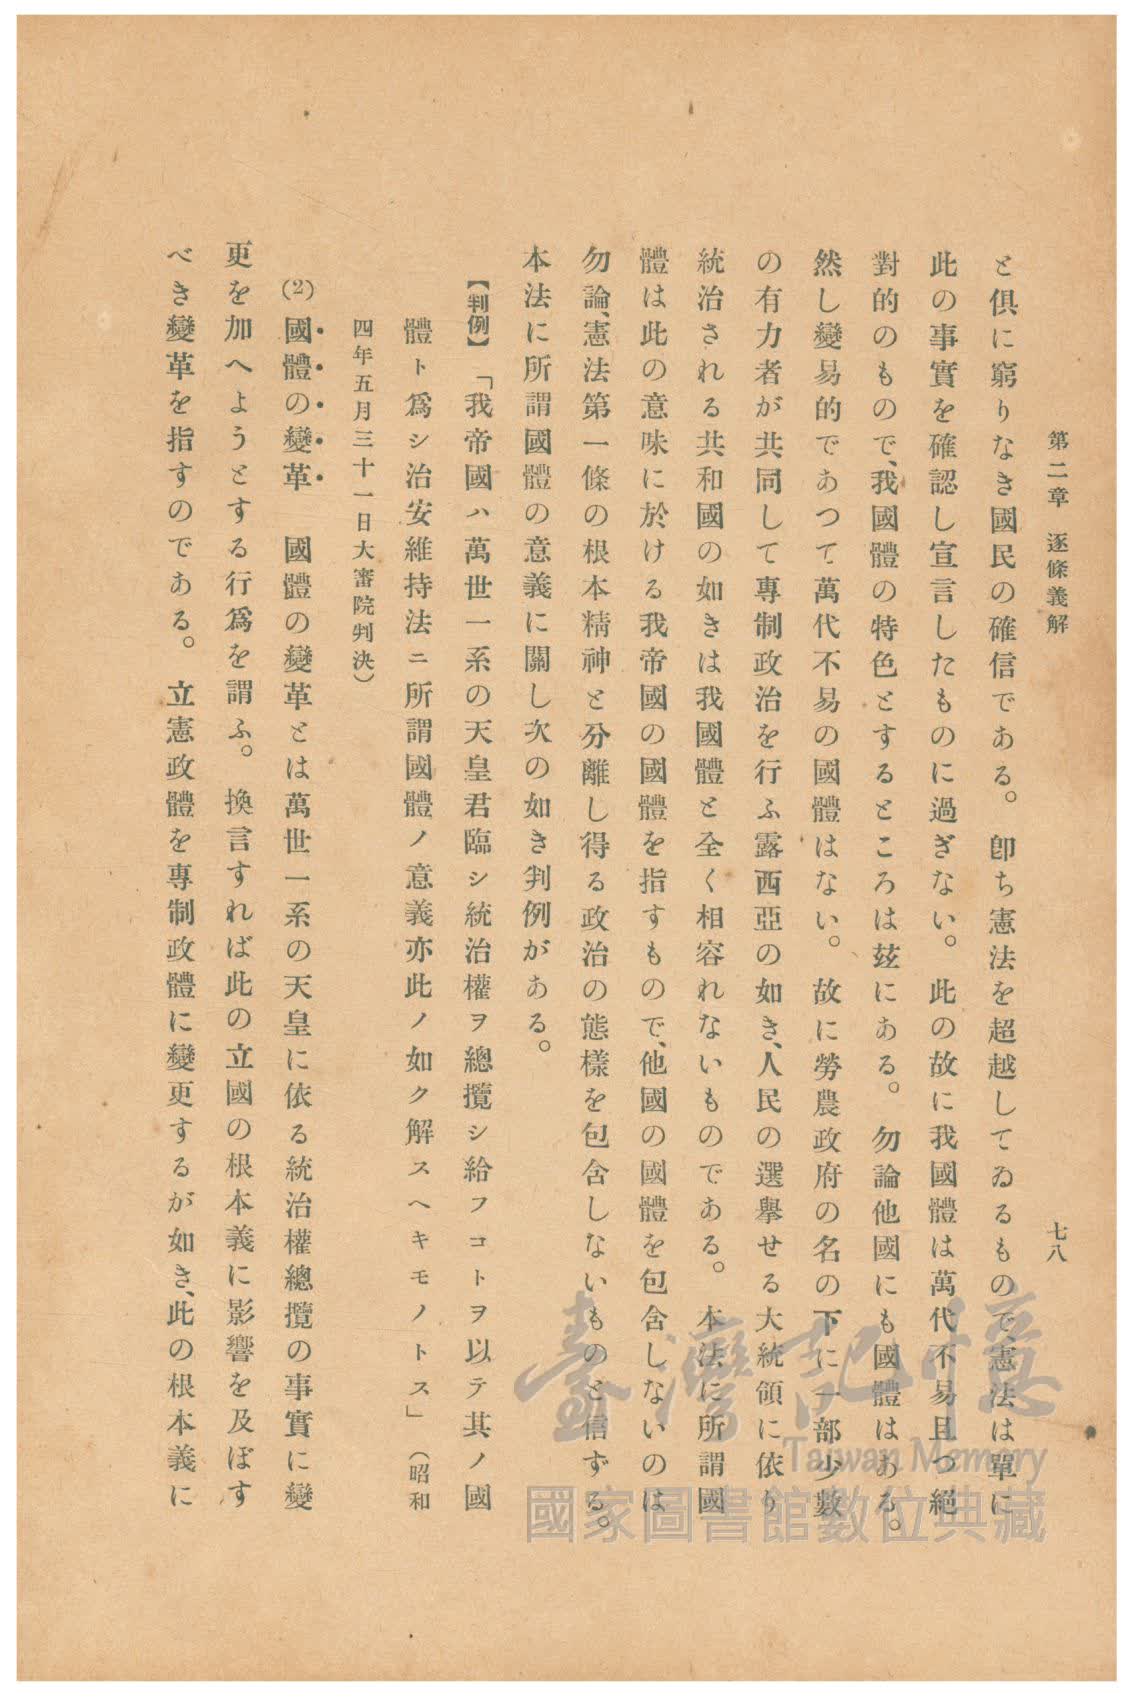 第二章　逐條義解　七八
と俱に窮りなき國民の確信である。卽ち憲法を超越してゐるもので、憲法は單に
此の事實を確認し宣言したものに過ぎない。此の故に我國體は萬代不易且つ絕
對的のもので、我國體の特色とするところは玆にある。勿論他國にも國體はある。
然し變易的であつて萬代不易の國體はない。故に勞農政府の名の下に一部少數
の有力者が共同して專制政治を行ふ露西亞の如き、人民の選擧せる大統領に依り
統治される共和國の如きは我國體と全く相容れないものである。本法に所謂國
體は此の意味に於ける我帝國の國體を指すもので、他國の國體を包含しないのは
勿論、憲法第一條の根本精神と分離し得る政治の態樣を包含しないものと信ずる。
本法に所謂國體の意義に關し次の如き判例がある。
【判例】「我帝國ハ萬世一系の天皇君臨シ統治權ヲ總攬シ給フコトヲ以テ其ノ國
體ト爲シ治安維持法ニ所謂國體ノ意義亦此ノ如ク解スヘキモノトス」（昭和
四年五月三十一日大審院判決）
(2)國體の變革　國體の變革とは萬世一系の天皇に依る統治權總攬の事實に變
更を加へようとする行爲を謂ふ。換言すれば此の立國の根本義に影響を及ぼす
べき變革を指すのである。立憲政體を專制政體に變更するが如き、此の根本義に
臺灣記憶
Taiwan Memory
國家圖書館數位典藏